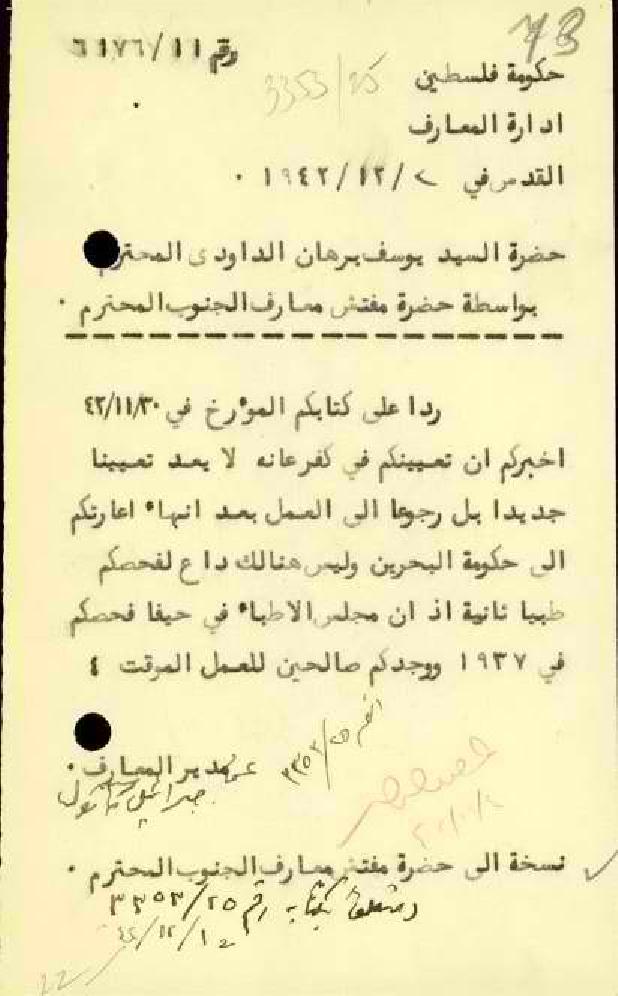 73
رقم ٦١٧٦/١١
3353/25
حكومة فلسطين
ادارة المعارف
القدس في ٢/١٢/١٩٤٢ ٠
حضرة السيد يوسف برهان الداودي المحترم
بواسطة حضرة مفتش معارف الجنوب المحترم ٠
ردا على كتابكم المؤرخ في ٤٢/١١/٣٠
اخبركم ان تعيينكم في كفرعانه لا يعد تعيينا
جديدا بل رجوعا الى العمل بعد انهاء اعارتكم
الى حكومة البحرين وليس هنالك داع لفحصكم
طبيا ثانية اذ ان مجلس الاطباء في حيفا فحصكم
في ١٩٣٧ ووجدكم صالحين للعمل الموقت ٤
٣٣٥٣/٢٥
عن مدير المعارف ٠
جبرائيل كاتول
نسخة الى حضرة مفتش معارف الجنوب المحترم ٠
بكتابه رقم ٣٣٥٣/٢٥
22